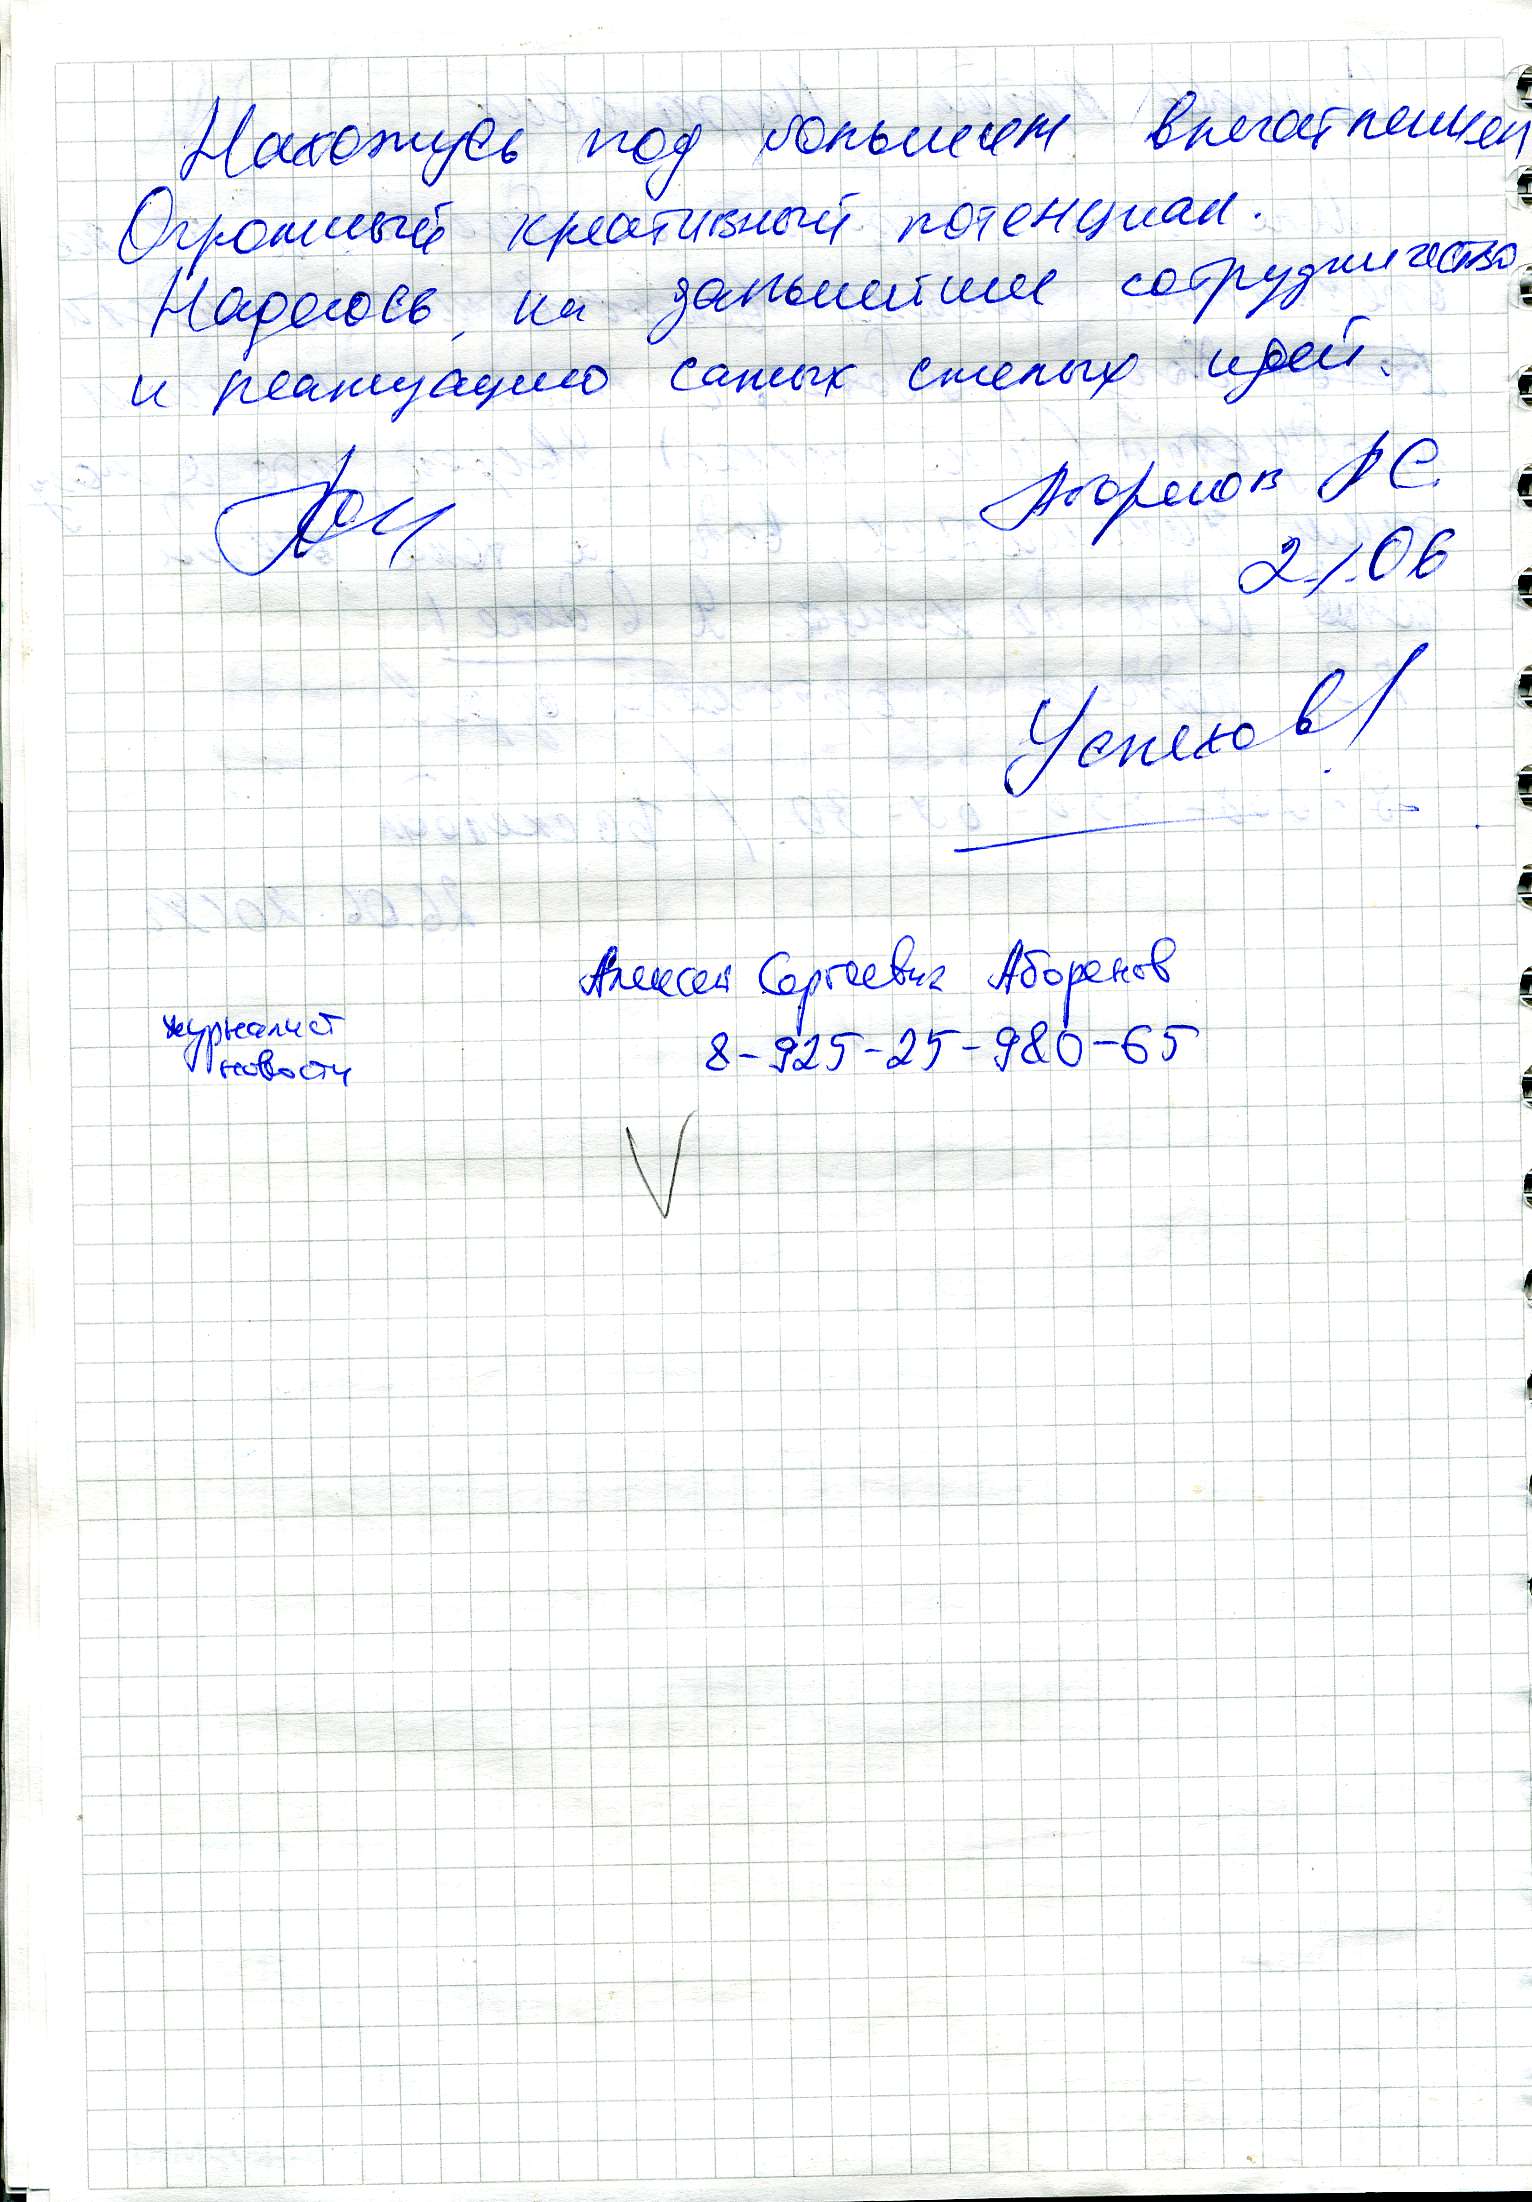 Нахожусь под большим впечатлением
Огромный креативный потенциал.
Надеюсь на дальнейшее сотрудничество
и реализацию самых смелых идей.
Аборенов АС.
21.06
Успехов!
Алексей Сергеевич Аборенов
журналист
8-925-25-980-65
новости